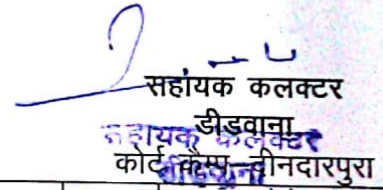 सहायक कलक्टर
डीडवाना
सहायक कलक्टर
कोर्ट कैम्प दीनदारपुरा
डीडवाना